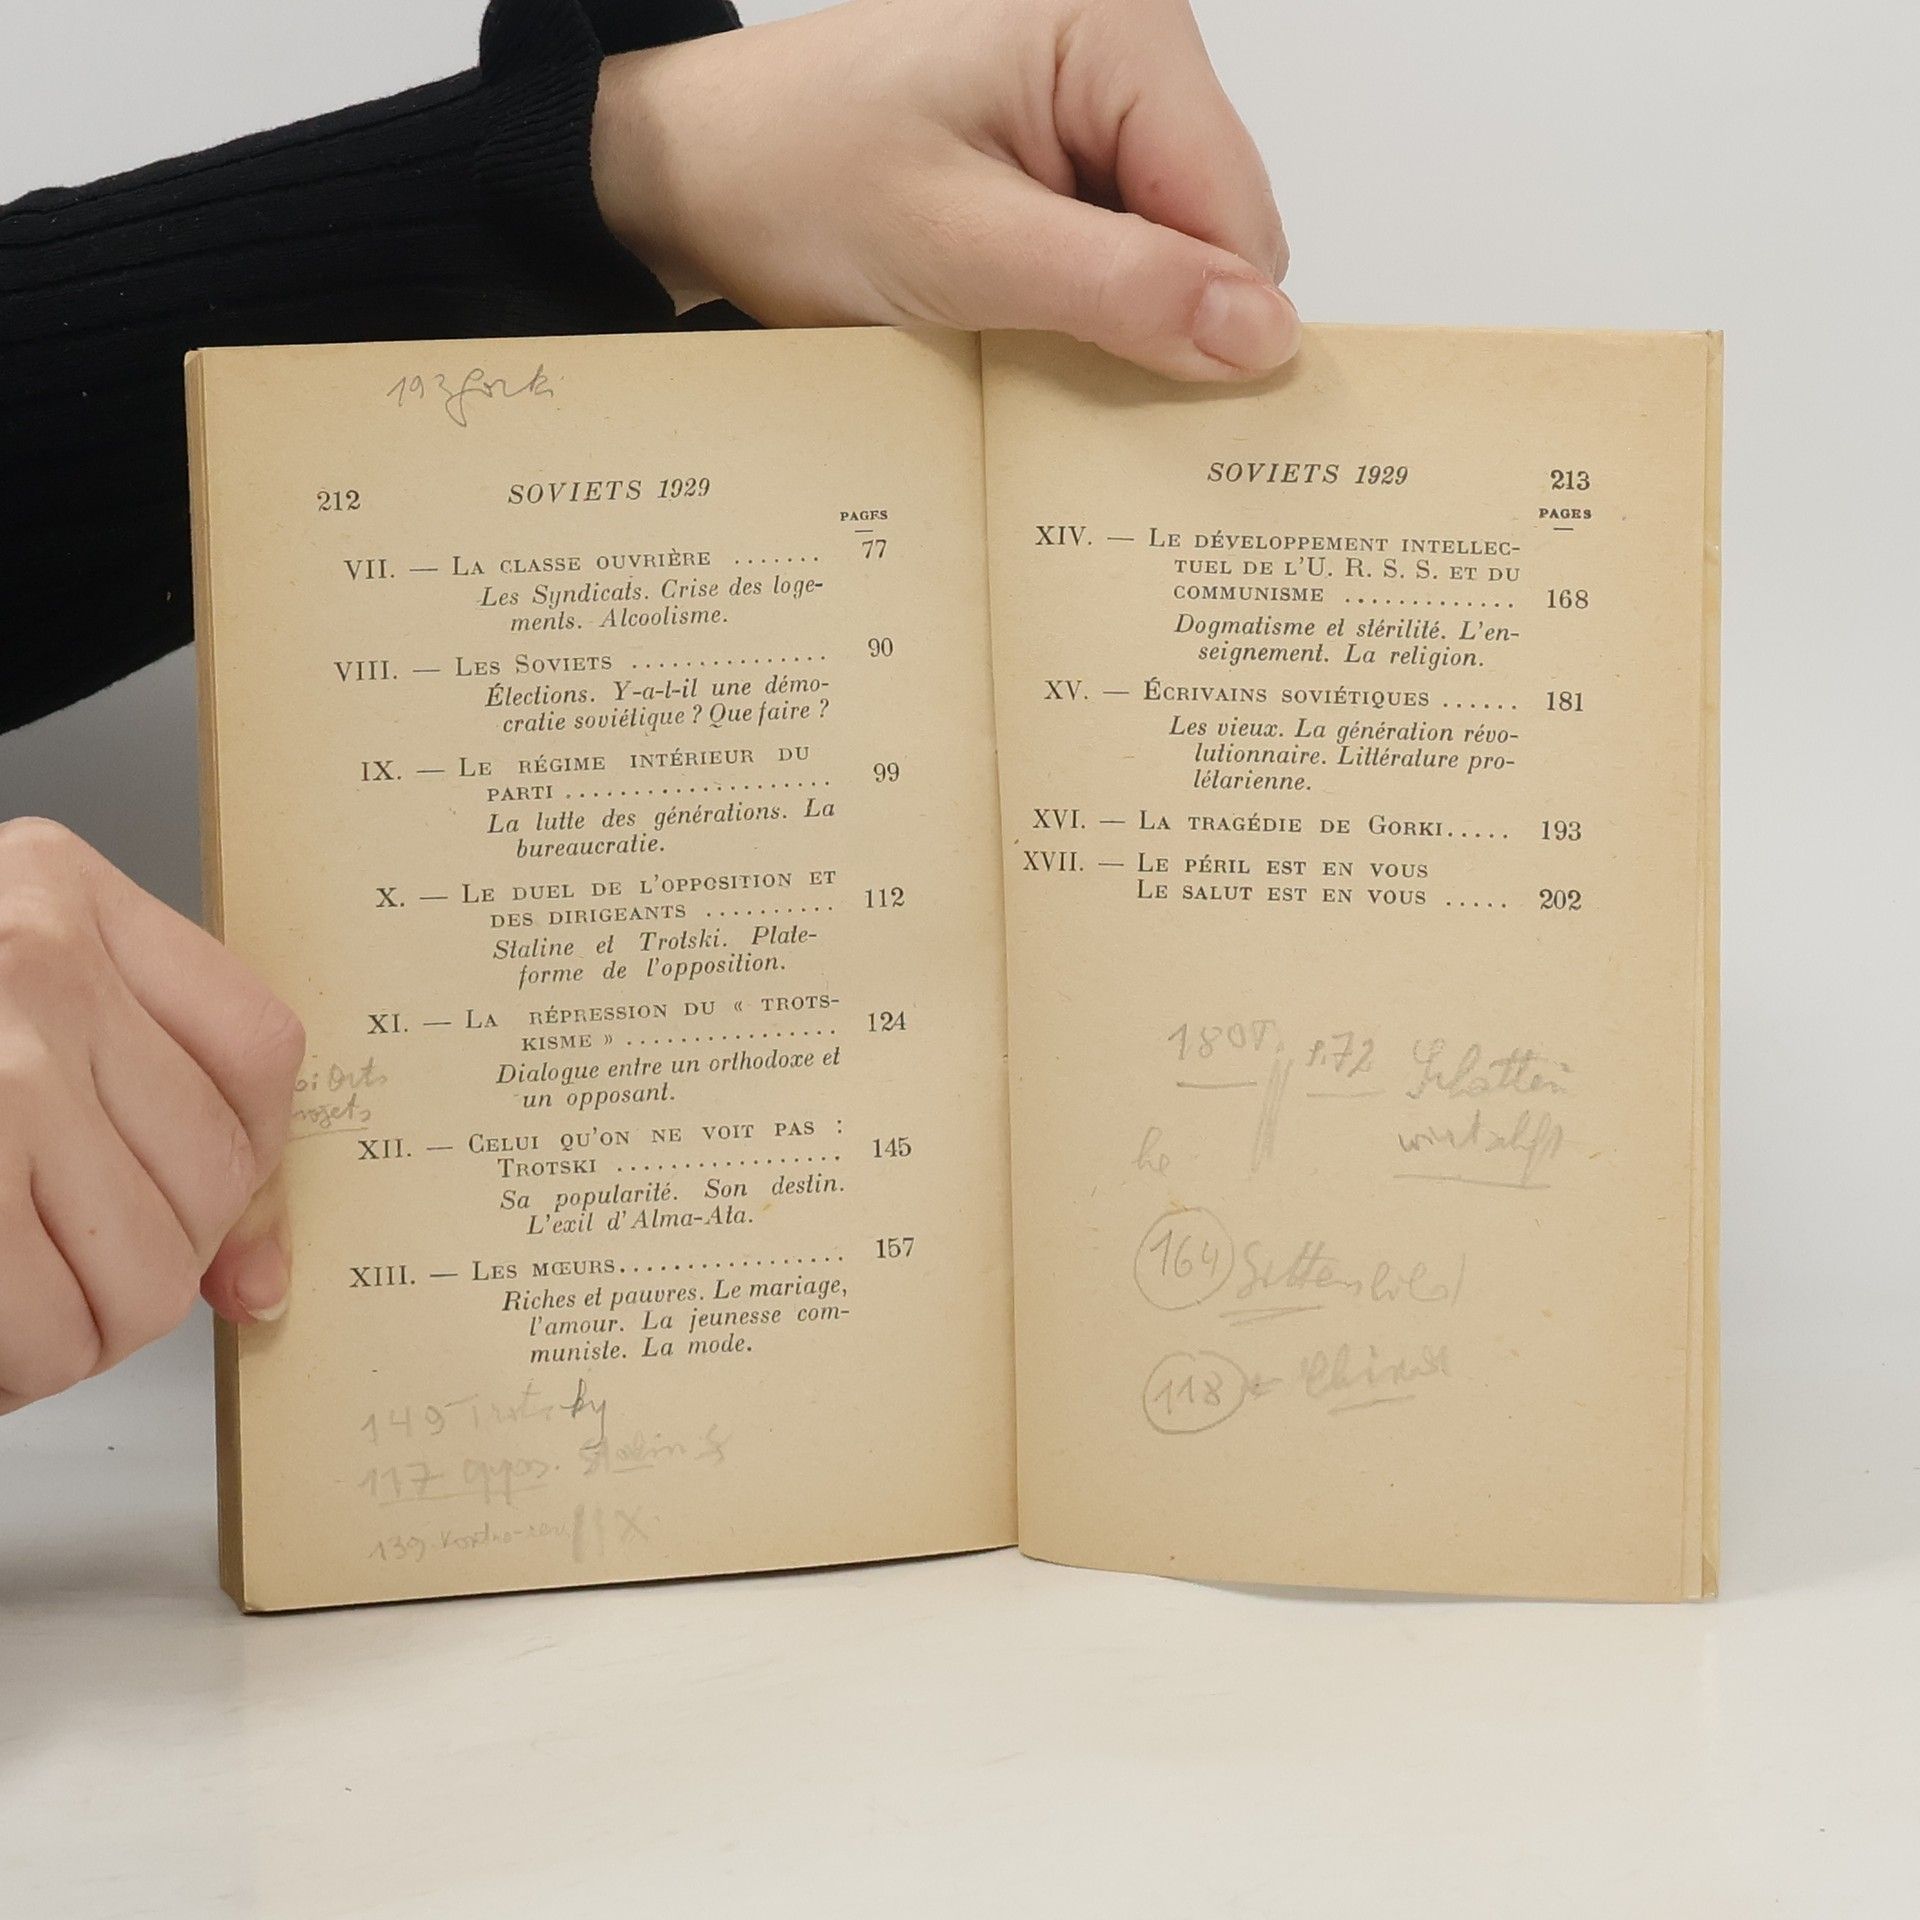 193 Gorki
212 SOVIETS 1929
PAGES
VII. — LA CLASSE OUVRIÈRE ....... 77
Les Syndicats. Crise des loge-
ments. Alcoolisme.
VIII. — LES SOVIETS ............... 90
Élections. Y-a-t-il une démo-
cratie soviétique ? Que faire ?
IX. — LE RÉGIME INTÉRIEUR DU
PARTI .................... 99
La lutte des générations. La
bureaucratie.
X. — LE DUEL DE L'OPPOSITION ET
DES DIRIGEANTS .......... 112
Staline et Trotski. Plate-
forme de l'opposition.
XI. — LA RÉPRESSION DU « TROTS-
KISME » ................ 124
Dialogue entre un orthodoxe et
un opposant.
XII. — CELUI QU'ON NE VOIT PAS :
TROTSKI ................. 145
Sa popularité. Son destin.
L'exil d'Alma-Ata.
XIII. — LES MŒURS................. 157
Riches et pauvres. Le mariage,
l'amour. La jeunesse com-
muniste. La mode.
149 Trotsky
117 oppos. Stalin
139
SOVIETS 1929 213
PAGES
XIV. — LE DÉVELOPPEMENT INTELLEC-
TUEL DE L'U. R. S. S. ET DU
COMMUNISME ............. 168
Dogmatisme et stérilité. L'en-
seignement. La religion.
XV. — ÉCRIVAINS SOVIÉTIQUES ...... 181
Les vieux. La génération révo-
lutionnaire. Littérature pro-
létarienne.
XVI. — LA TRAGÉDIE DE GORKI..... 193
XVII. — LE PÉRIL EST EN VOUS
LE SALUT EST EN VOUS ..... 202
180 72 Schatten
wirtschft
164 Sittenbild
118